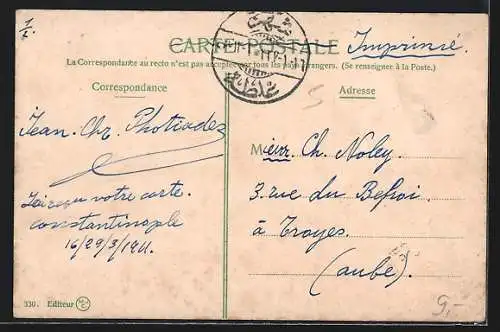 1/2
CARTE POSTALE
Imprimé
La Correspondance au recto n'est pas acceptée par tous les pays étrangers. (Se renseigner à la Poste.)
Correspondance
Adresse
Jean. Chr. Photiadez
J'ai reçu votre carte.
Constantinople
16/29/3/1911.
Mieur. Ch. Noley
3. rue du Befroi
à Troyes
(aube).
330. Editeur
9.-